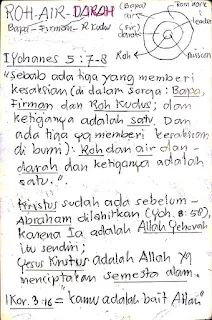 ROH-AIR-DARAH
Bapa - Firman - R. Kudus
(Bapa)
air
(Fir)
darah
Roh
I Yohanes 5:7-8
"Sebab ada tiga yang memberi
kesaksian (di dalam sorga: Bapa,
Firman dan Roh Kudus; dan
ketiganya adalah satu. Dan
ada tiga yg memberi kesaksian
di bumi): Roh dan air dan
darah dan ketiganya adalah
satu."
Kristus sudah ada sebelum
Abraham dilahirkan (Yoh. 8:58),
karena Ia adalah Allah Yehovah
itu sendiri;
Yesus Kristus adalah Allah yg
menciptakan semesta alam.
I Kor. 3:16 = "kamu adalah bait Allah"